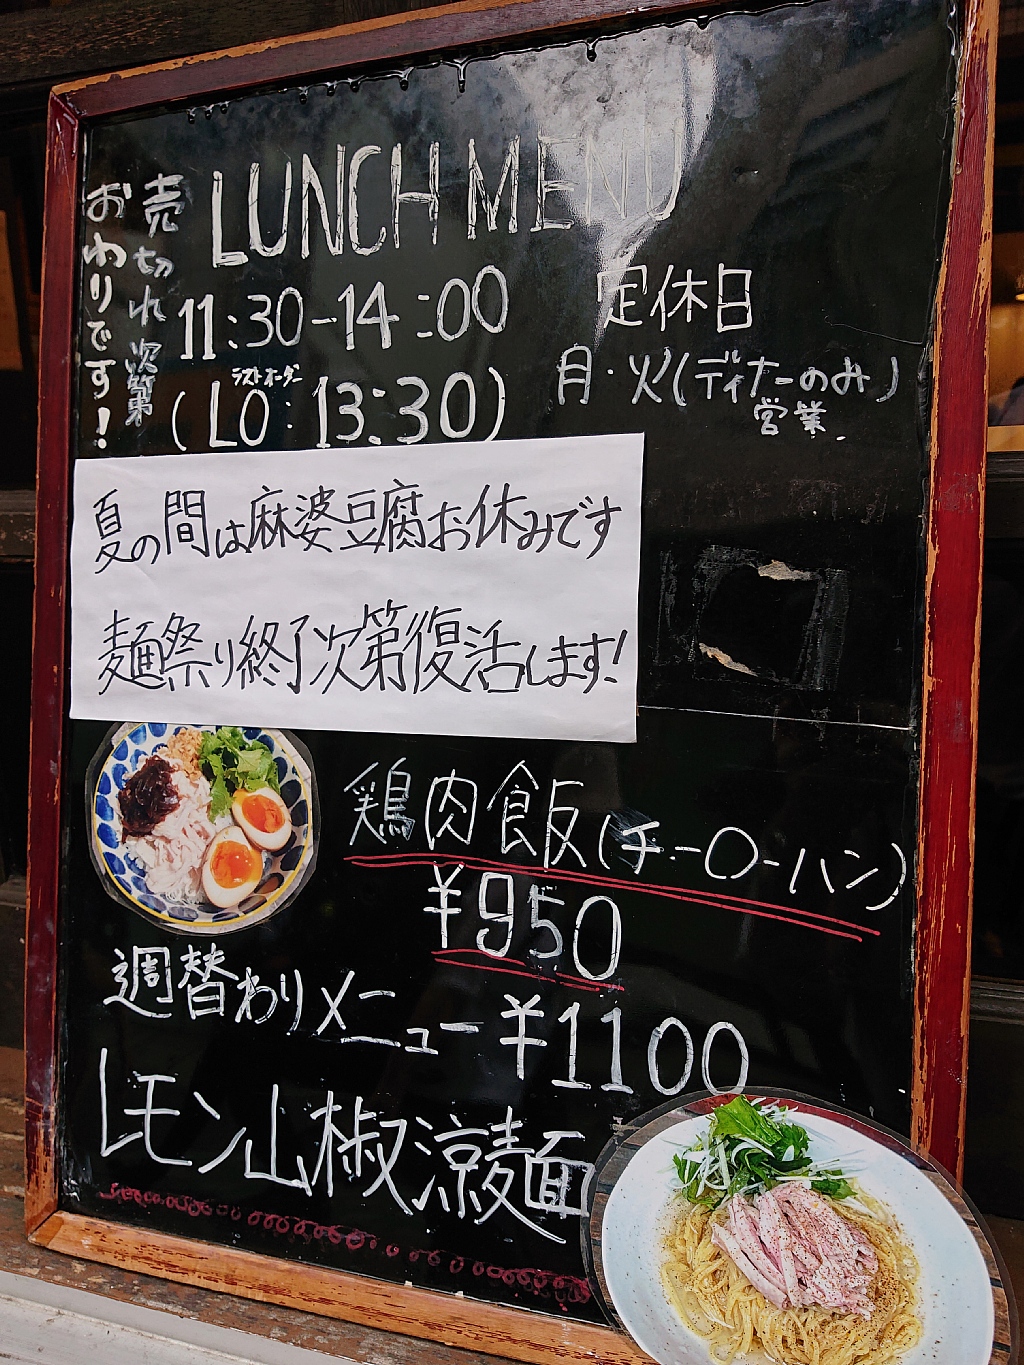 LUNCH MENU
売切れ次第
おわりです!
11:30-14:00
ラストオーダー
(LO:13:30)
定休日
月・火(ディナーのみ)
営業.
夏の間は麻婆豆腐お休みです
麺祭り終了次第復活します!
鶏肉飯(チーローハン)
¥950
週替わりメニュー¥1100
レモン山椒涼麺